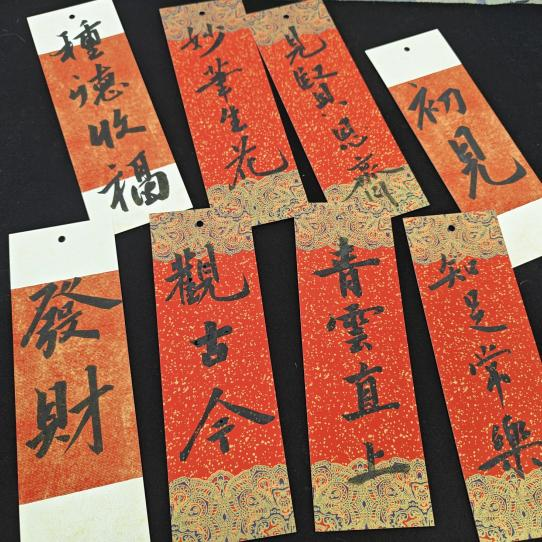 種德收福
妙華生花
見賢思齊
初見
發財
觀古今
青雲直上
知足常樂